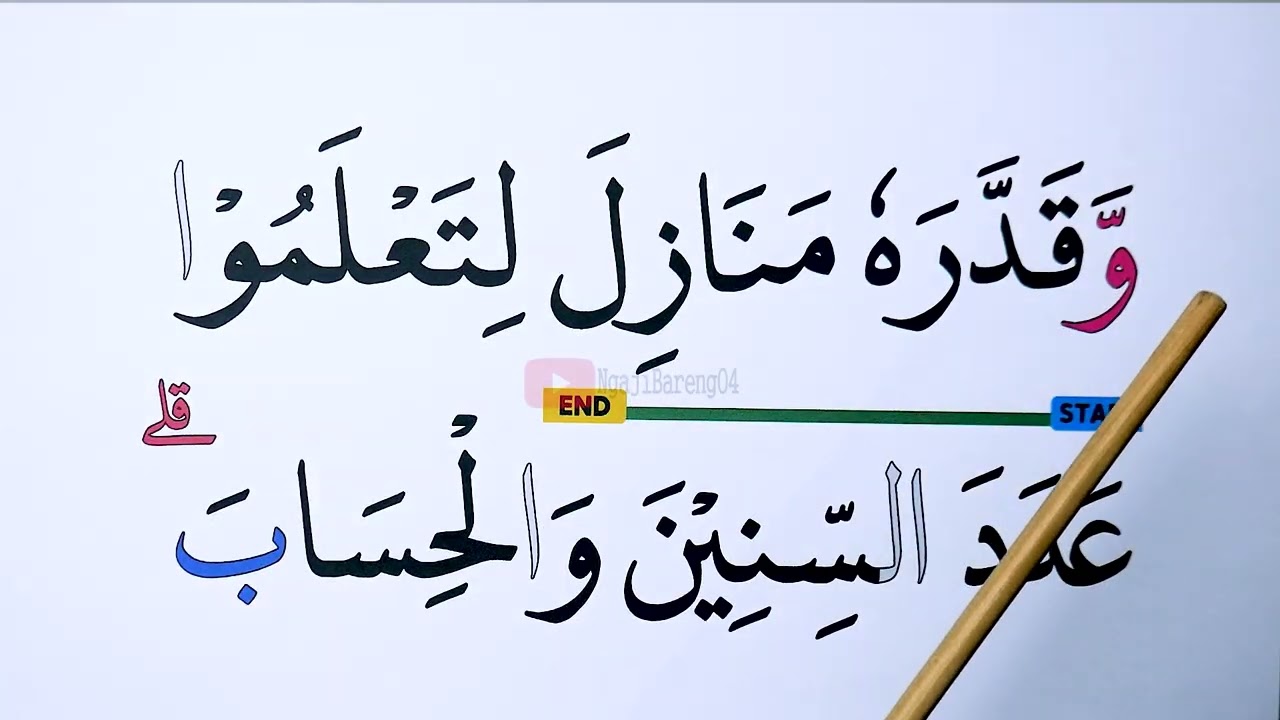 وَّقَدَّرَهٗ مَنَازِلَ لِتَعْلَمُوْا
NgajiBareng04
END
عَدَدَ السِّنِيْنَ وَالْحِسَابَۗ